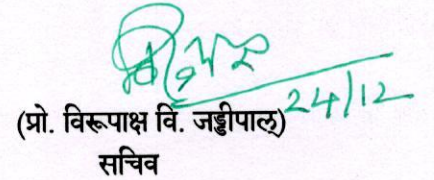 24/12
(प्रो. विरूपाक्ष वि. जड्डीपाल्)
सचिव